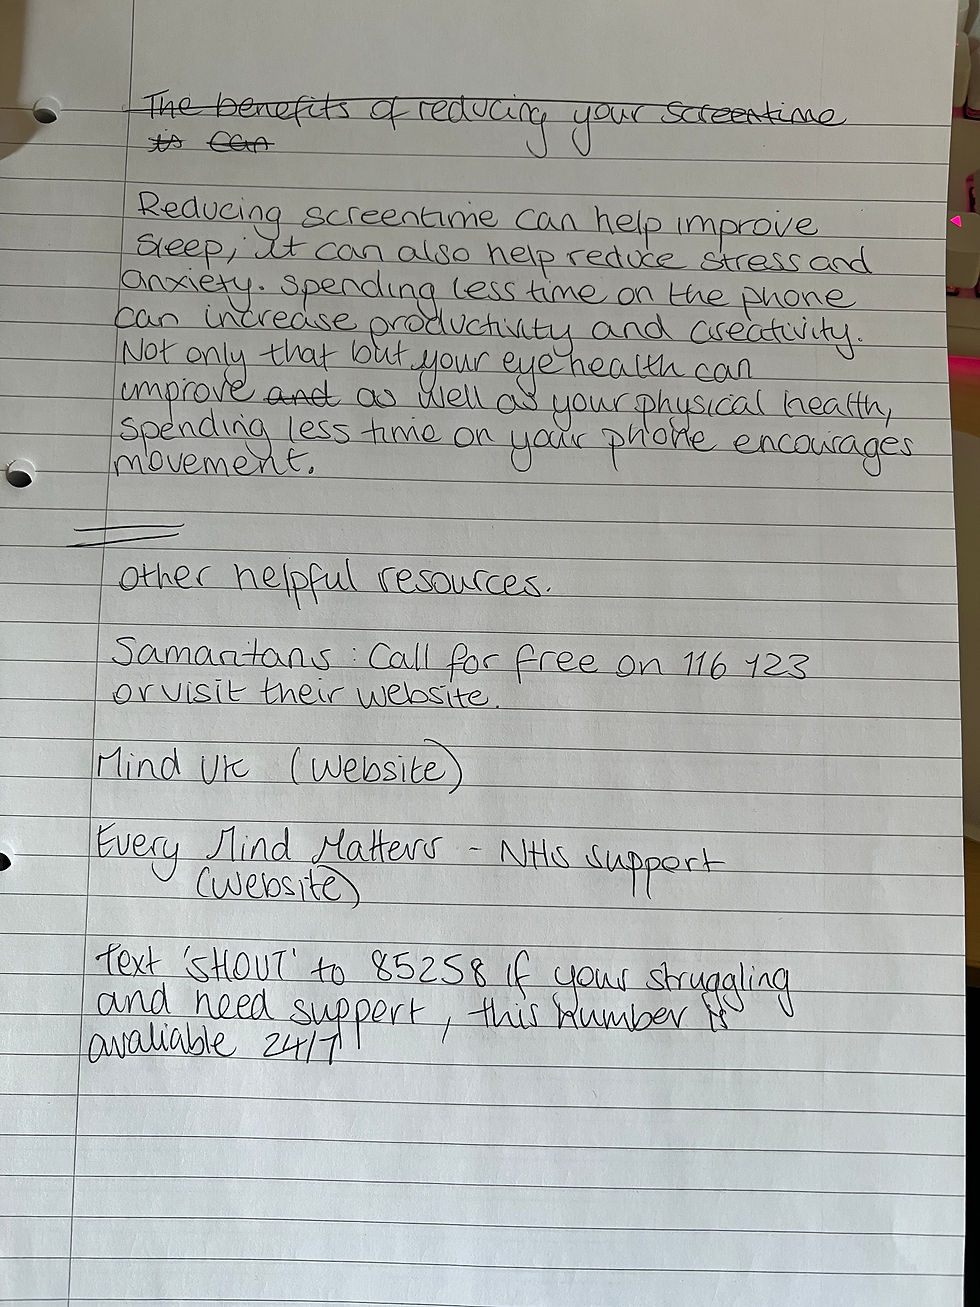 The benefits of reducing your screentime
is can
Reducing screentime can help improve
sleep, it can also help reduce stress and
anxiety. spending less time on the phone
can increase productivity and creativity.
Not only that but your eye health can
improve and as well as your physical health,
spending less time on your phone encourages
movement.
other helpful resources.
Samaritans : Call for free on 116 123
or visit their website.
Mind UK (website)
Every Mind Matters - NHS support
(website)
text 'SHOUT' to 85258 if your struggling
and need support, this number is
avaliable 24/7